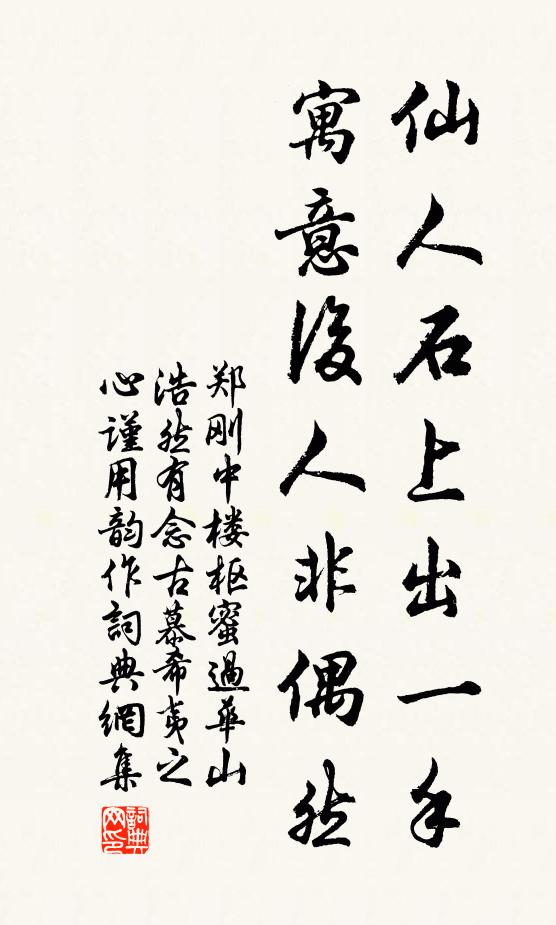 仙人石上出一手
寓意後人非偶然
郑刚中楼枢蜜過華山
浩然有念古慕希夷之
心謹用韵作詞典網集
詞典網印